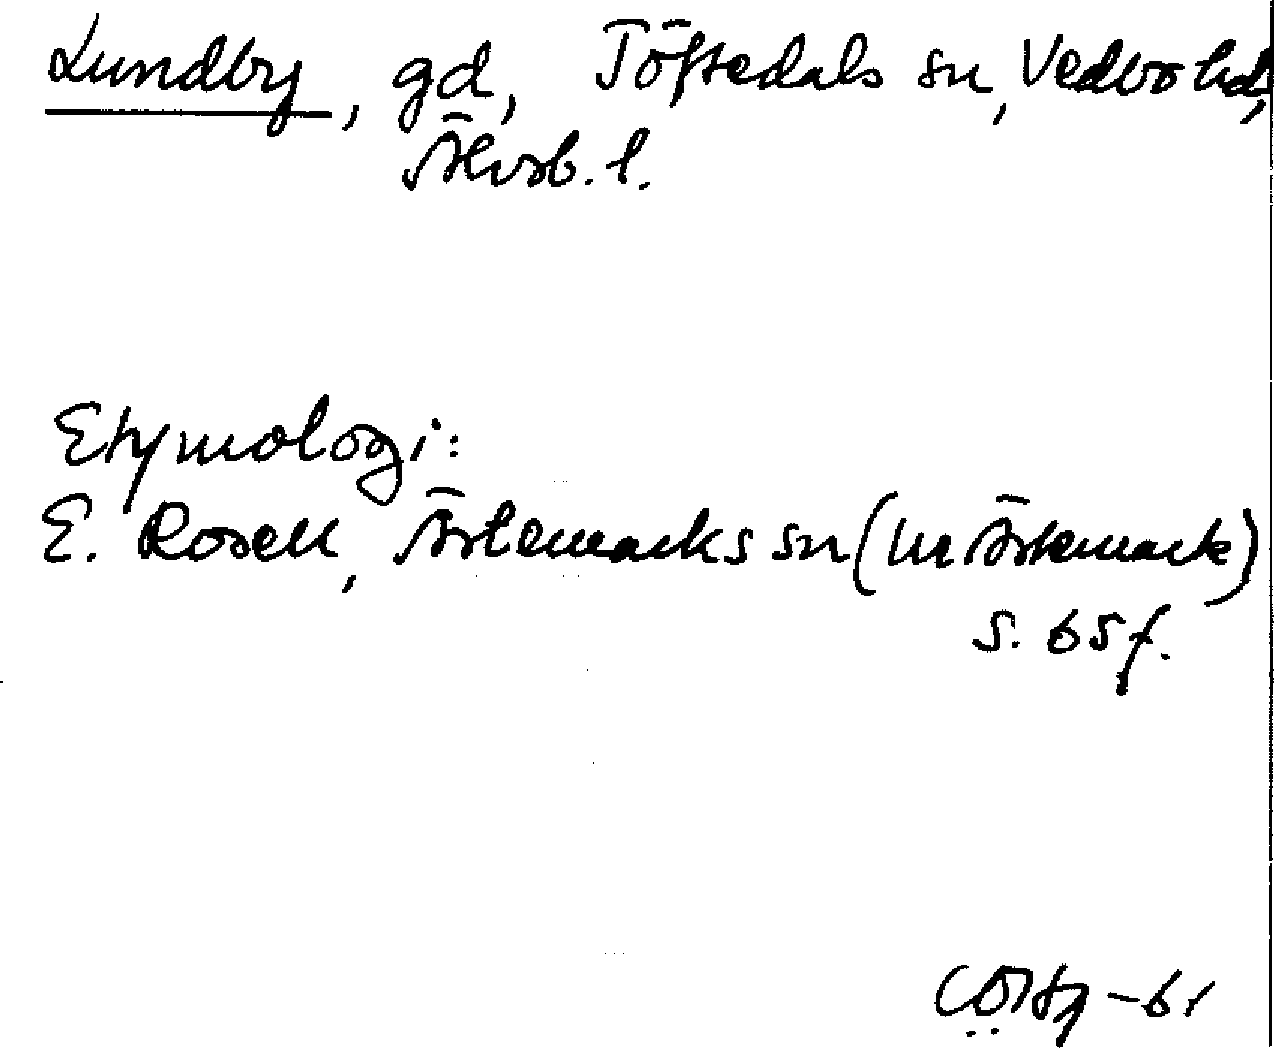 Lundby, gd, Töftedals sn, Vedbo hd,
Älvsb. l.
Etymologi:
E. Rosell, Ärtemarks sn (ur Ärtemark)
s. 65 f.
-61